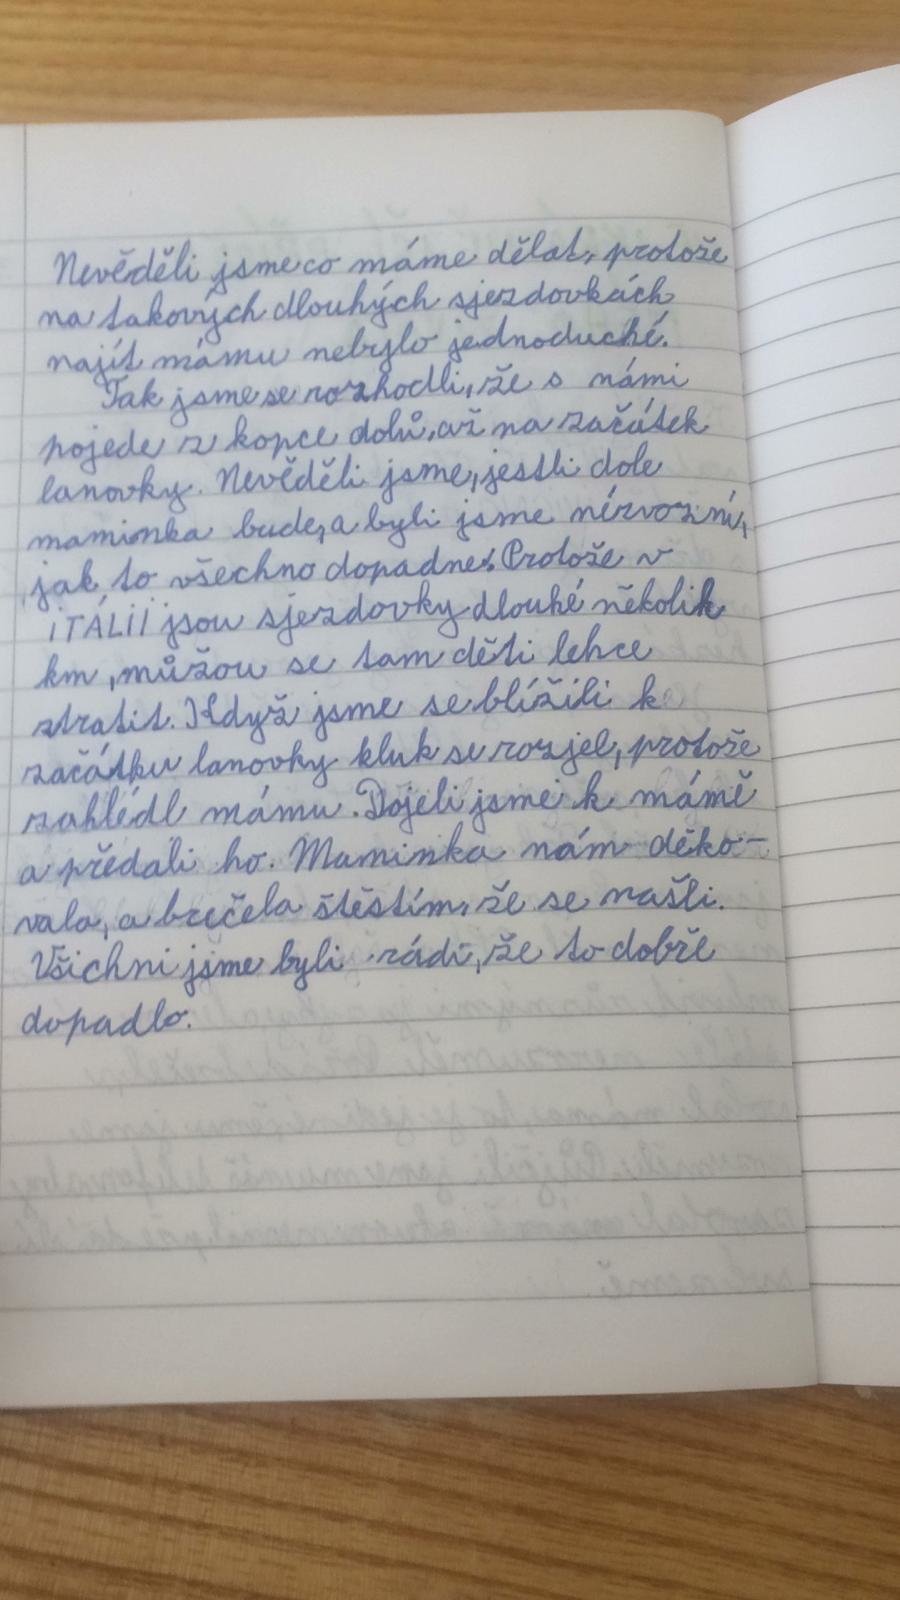 Nevěděli jsme co máme dělat, protože
na takových dlouhých sjezdovkách
najít mámu nebylo jednoduché.
Tak jsme se rozhodli, že s námi
pojede z kopce dolů, až na začátek
lanovky. Nevěděli jsme, jestli dole
maminka bude, a byli jsme nérvozní,
jak to všechno dopadne. Protože v
ITÁLII jsou sjezdovky dlouhé několik
km, můžou se tam děti lehce
ztratit. Když jsme se blížili k
začátku lanovky kluk se rozjel, protože
zahlédl mámu. Dojeli jsme k mámě
a předali ho. Maminka nám děko-
vala, a brečela štěstím, že se našli.
Všichni jsme byli rádi, že to dobře
dopadlo.